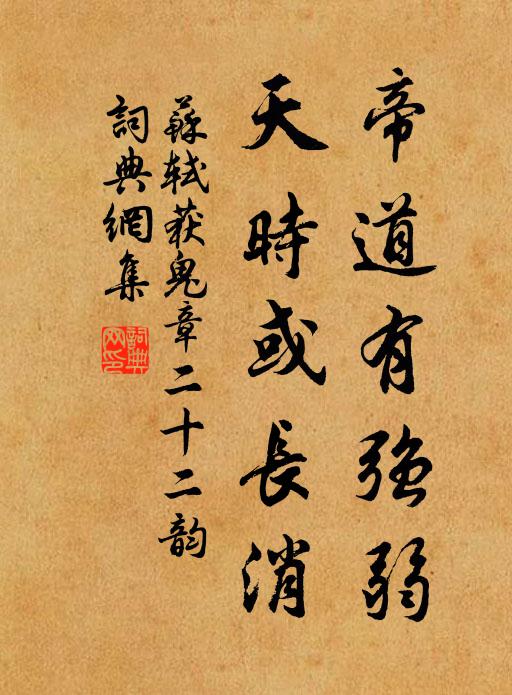 帝道有强弱
天時或長消
蘇軾获鬼章二十二韵
詞典網集
詞典網印